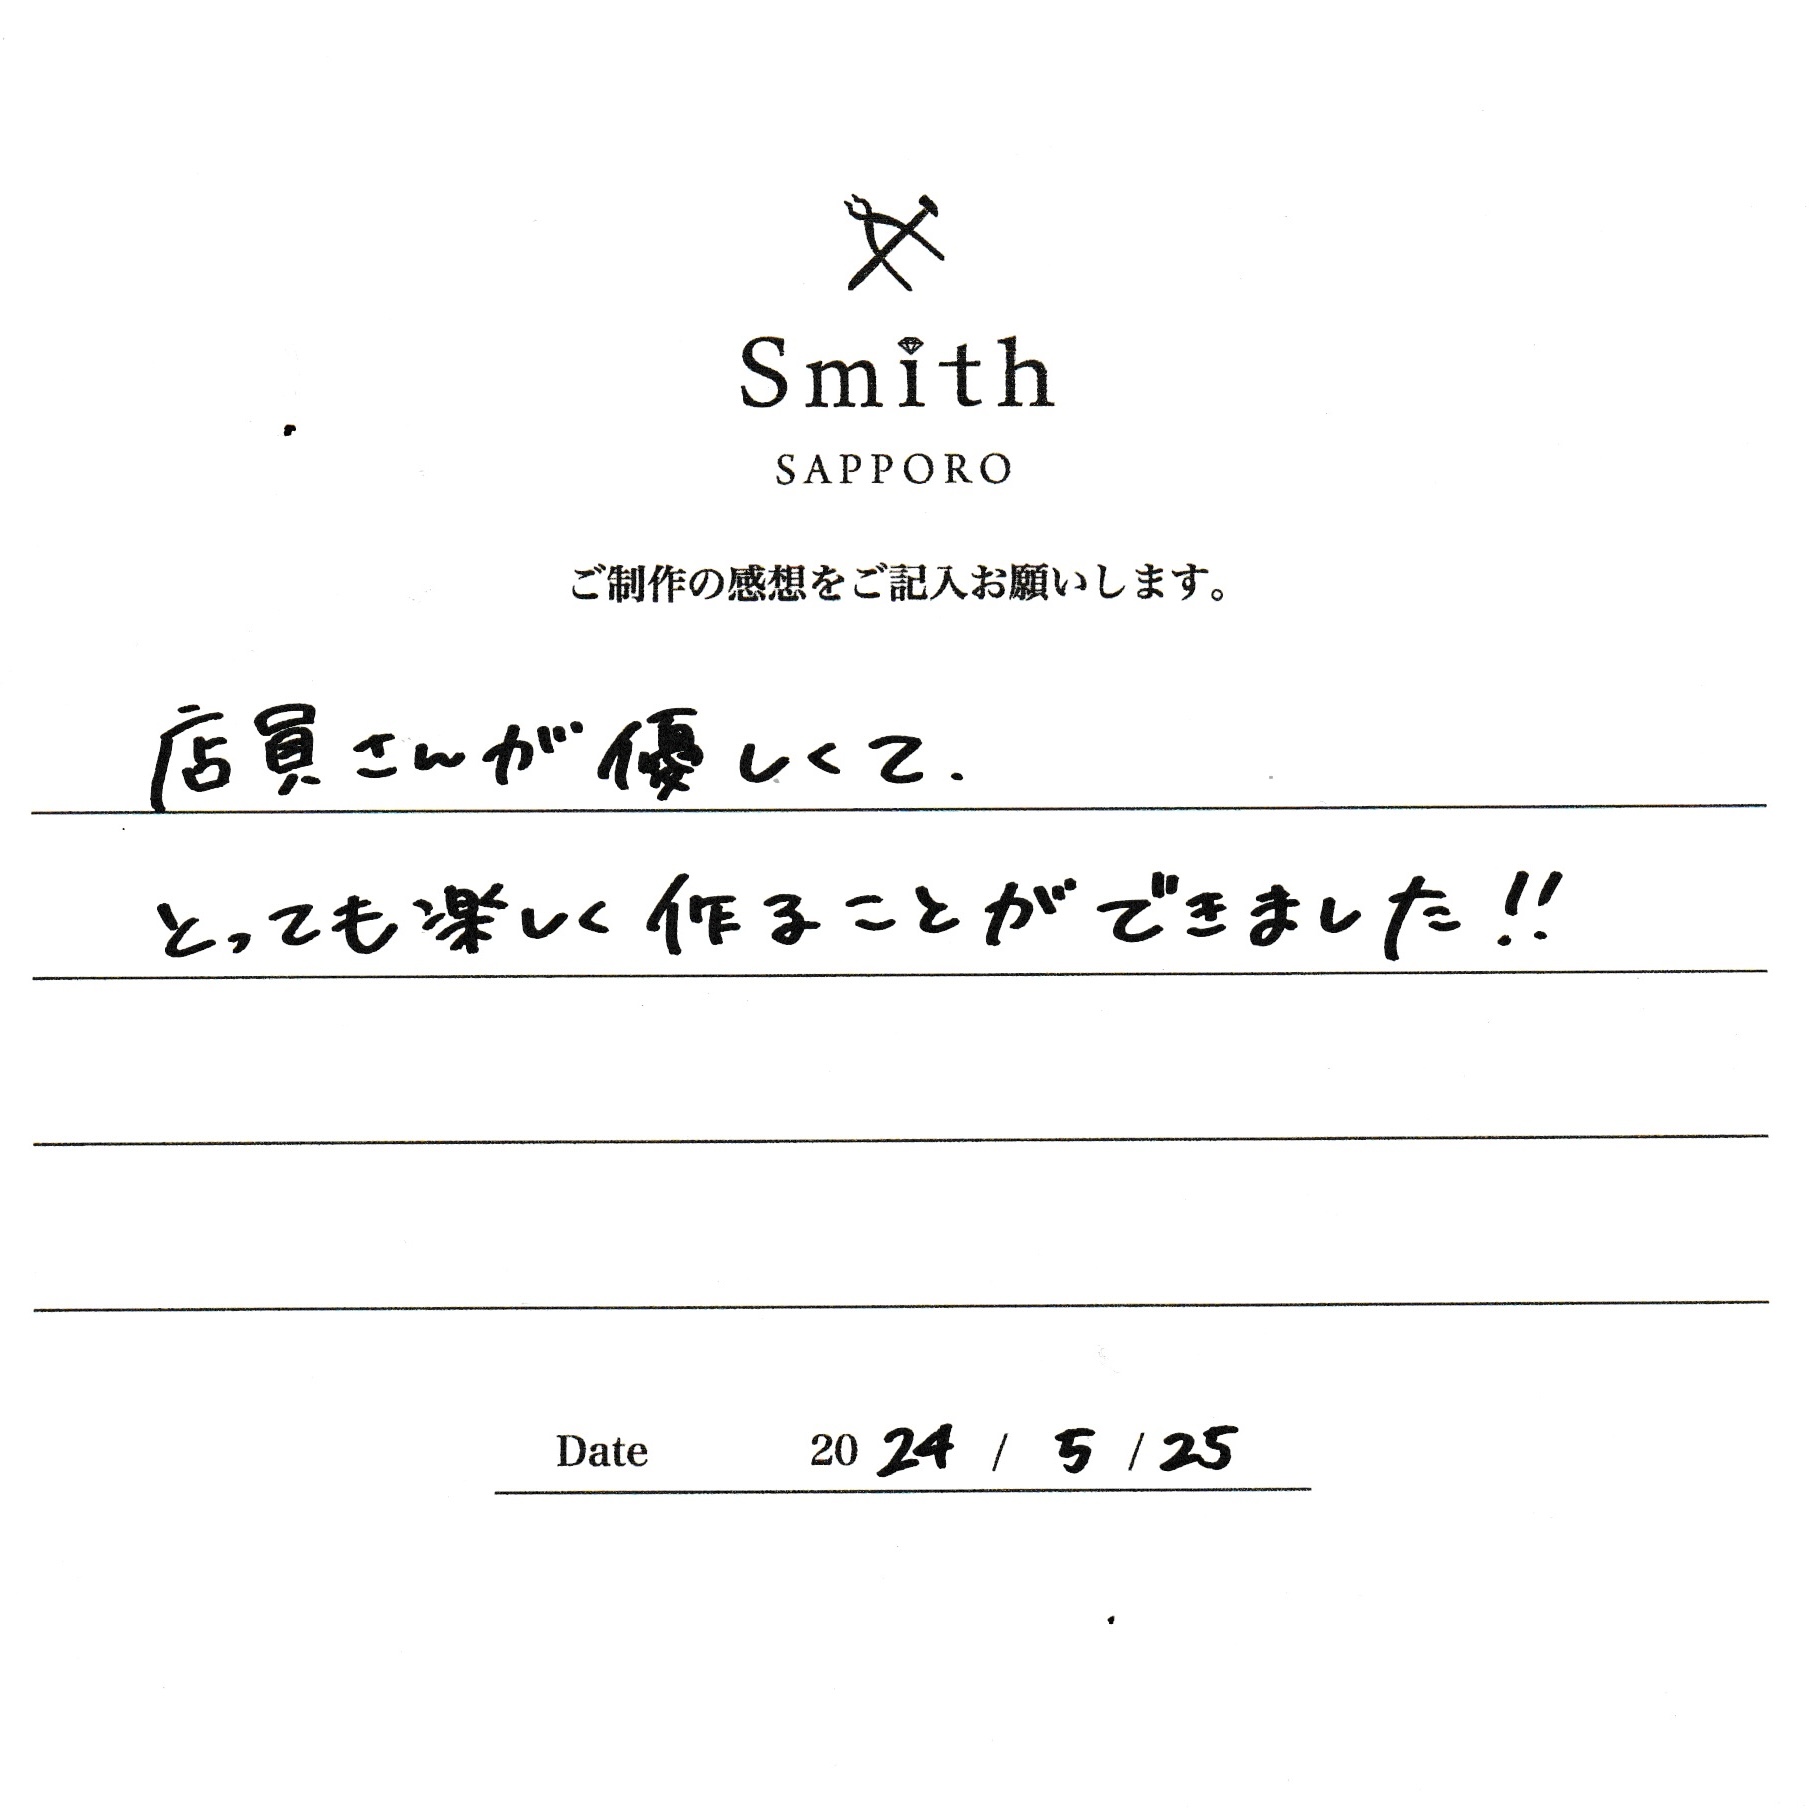 Smith
SAPPORO
ご制作の感想をご記入お願いします。
店員さんが優しくて.
とっても楽しく作ることができました!!
Date 2024 / 5 / 25